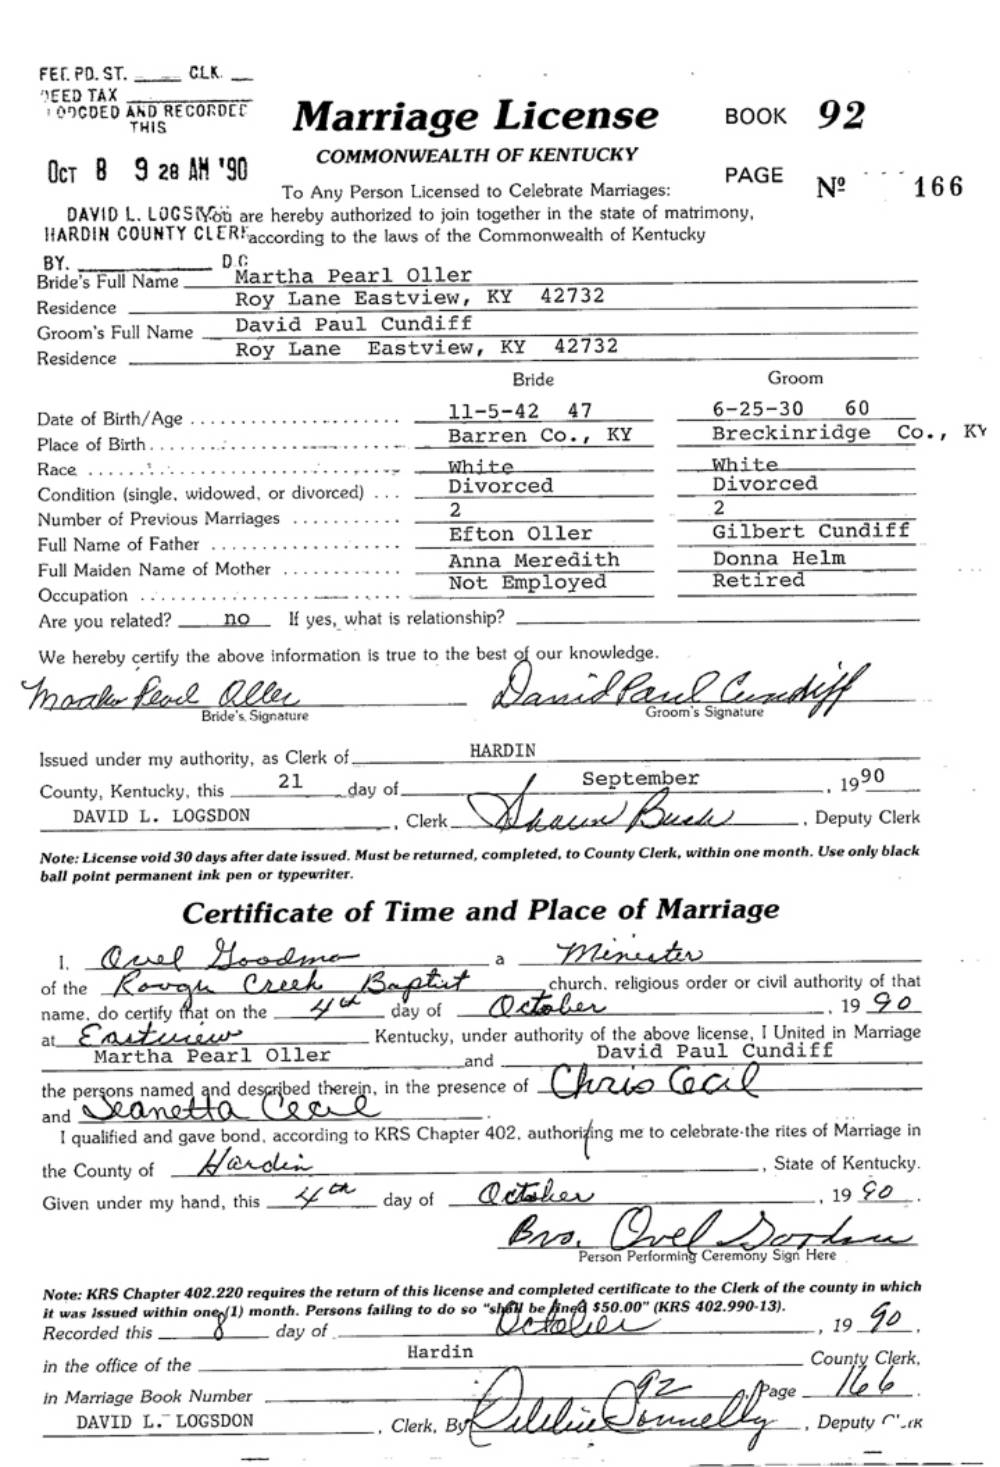 FEE. PD. ST. ____ CLK. __
DEED TAX
LODGED AND RECORDED
THIS
OCT 8 9 28 AM '90
DAVID L. LOGSDON
HARDIN COUNTY CLERK
BY. ____ D.C.
Marriage License
COMMONWEALTH OF KENTUCKY
BOOK 92
PAGE Nº 166
To Any Person Licensed to Celebrate Marriages:
You are hereby authorized to join together in the state of matrimony,
according to the laws of the Commonwealth of Kentucky
Bride's Full Name Martha Pearl Oller
Residence Roy Lane Eastview, KY 42732
Groom's Full Name David Paul Cundiff
Residence Roy Lane Eastview, KY 42732
Bride Groom
Date of Birth/Age 11-5-42 47 6-25-30 60
Place of Birth Barren Co., KY Breckinridge Co., KY
Race White White
Condition (single, widowed, or divorced) Divorced Divorced
Number of Previous Marriages 2 2
Full Name of Father Efton Oller Gilbert Cundiff
Full Maiden Name of Mother Anna Meredith Donna Helm
Occupation Not Employed Retired
Are you related? no If yes, what is relationship?
We hereby certify the above information is true to the best of our knowledge.
Martha Pearl Oller David Paul Cundiff
Bride's Signature Groom's Signature
Issued under my authority, as Clerk of HARDIN
County, Kentucky, this 21 day of September, 1990
DAVID L. LOGSDON, Clerk Shaun Bush, Deputy Clerk
Note: License void 30 days after date issued. Must be returned, completed, to County Clerk, within one month. Use only black
ball point permanent ink pen or typewriter.
Certificate of Time and Place of Marriage
I, Ovel Goodman a Minister
of the Rough Creek Baptist church, religious order or civil authority of that
name, do certify that on the 4th day of October, 1990
at Eastview Kentucky, under authority of the above license, I United in Marriage
Martha Pearl Oller and David Paul Cundiff
the persons named and described therein, in the presence of Chris Cecil
and Jeanetta Cecil.
I qualified and gave bond, according to KRS Chapter 402, authorizing me to celebrate the rites of Marriage in
the County of Hardin, State of Kentucky.
Given under my hand, this 4th day of October, 1990.
Bro. Ovel Goodman
Person Performing Ceremony Sign Here
Note: KRS Chapter 402.220 requires the return of this license and completed certificate to the Clerk of the county in which
it was issued within one (1) month. Persons failing to do so "shall be fined $50.00" (KRS 402.990-13).
Recorded this 8 day of October, 1990,
in the office of the Hardin County Clerk,
in Marriage Book Number 92, Page 166.
DAVID L. LOGSDON, Clerk, By Debbie Donnelly, Deputy Clerk